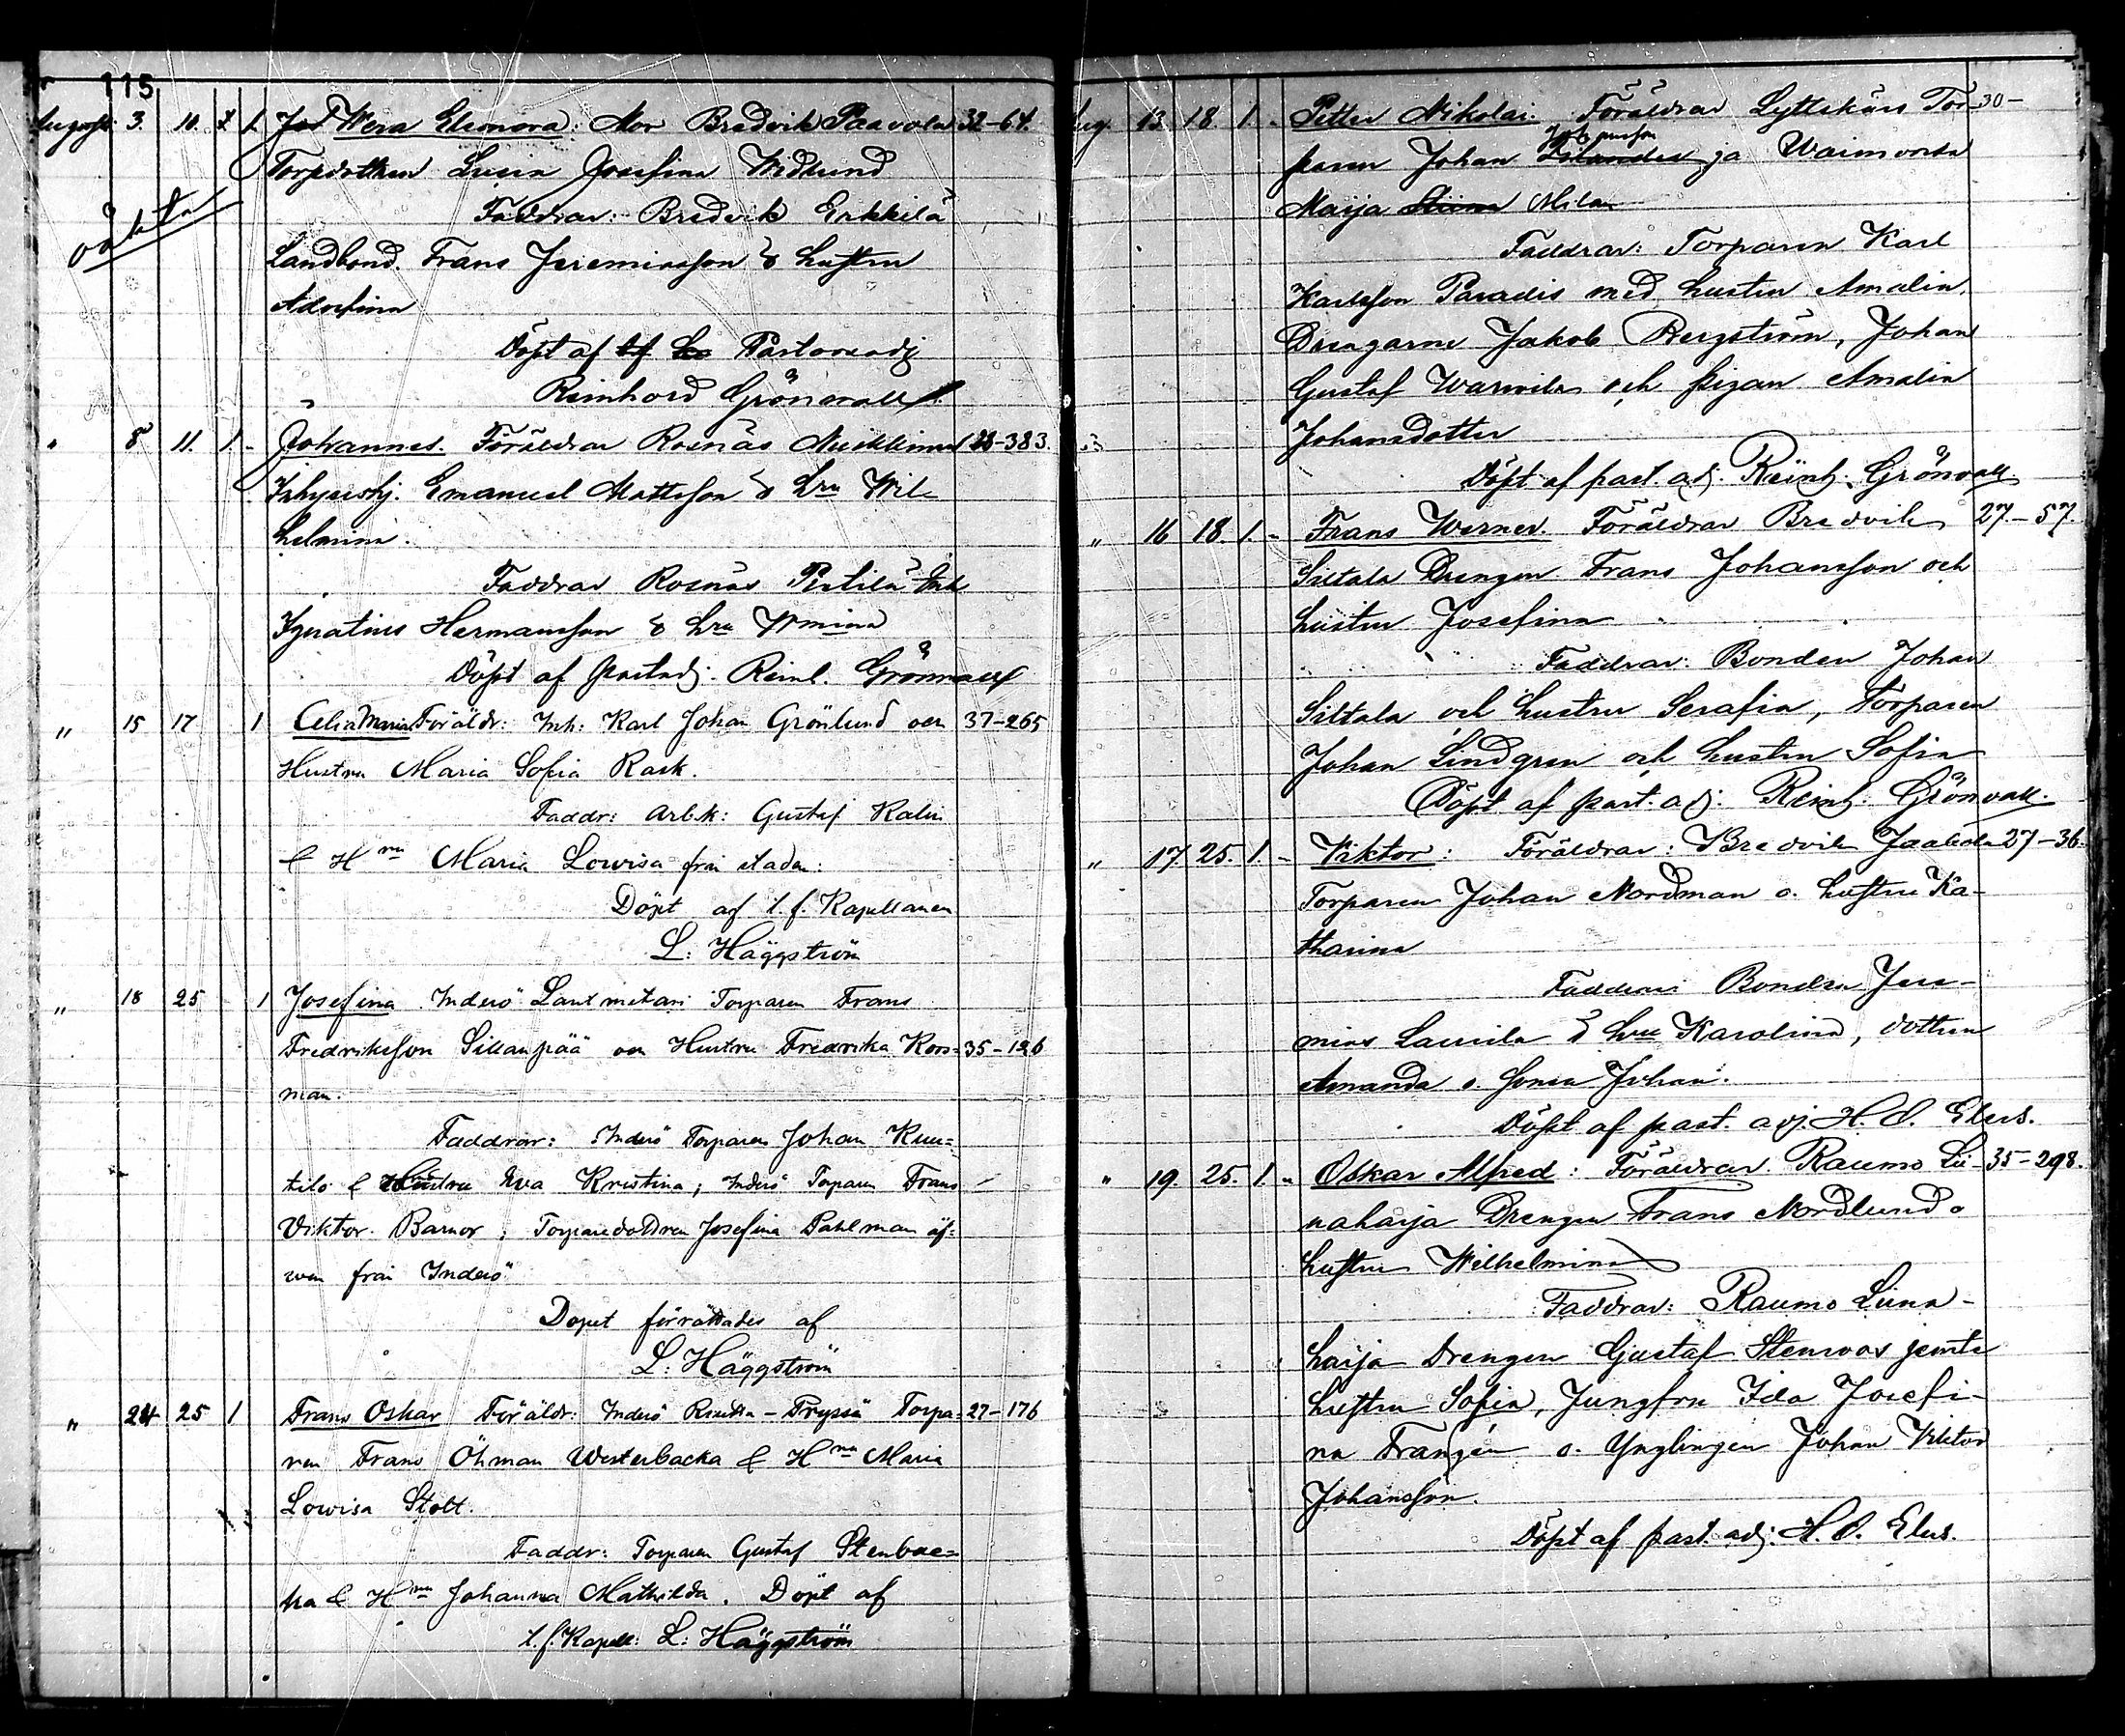 115
August. 3. 10. 1. Wera Eleonora: Mor Bredvik Paavola 32-64.
oäkta
Torpdottren Lusia Josefina Widlund
Faddrar: Bredvik Erkkilä
Landbond. Frans Jeremiasson & hustru
Adolfina
Döpt af Pastorsadj
Reinhord Grönvall.
" 8 11. 1. - Johannes. Föräldrar Rosnäs 28-383.
Inhyseshj. Emanuel Mattsson & Hru Wil-
helmina.
Faddrar Rosnäs Pentilä Inh
Ignatius Hermansson & hru Wmina
Döpt af Pastadj. Reinh. Grönvall
" 15 17 1 Celia Maria Föräldr: Inh: Karl Johan Grönlund och 37-265
Hustru Maria Sofia Rask.
Faddr: Arb.k: Gustaf Kalin
& Hru Maria Lowisa från staden.
Döpt af t.f. Kapellanen
L: Häggström
" 18 25 1 Josefina Inderö Lantmetari Torparen Frans
Fredriksson Sillanpää och Hustru Fredrika Kors= 35-126
man.
Faddrar: Inderö Torparen Johan Kuu=
tilo & Hustru Eva Kristina; Inderö Torparen Frans
Viktor Barnor; Torparedottren Josefina Dahlman äf=
wen från Inderö
Dopet förrättades af
L: Häggström
" 24 25 1 Frans Oskar Föräldr: Inderö - Pryssä Torpa= 27-176
ren Frans Öhman Westerbacka & Hru Maria
Lowisa Stolt.
Faddr: Torparen Gustaf Stenbac=
ka & Hru Johanna Mathilda. Döpt af
t.f. Kapell: L: Häggström
Aug. 13. 18. 1. - Petter Nikolai. Föräldrar Lyttskärs Tor- 30-
Johansson
paren Johan Islander ja Waimonsa
Maija Mila
Faddrar: Torparen Karl
Karlsson Paradis med hustru Amalia.
Drengarne Jakob Bergström, Johan
Gustaf Warvila och pigan Amalia
Johansdotter
Döpt af past. adj. Reinh. Grönvall.
" 16 18. 1. - Frans Werner. Föräldrar Bredvik 27-57.
Siltala Drengen Frans Johansson och
hustru Josefina
Faddrar: Bonden Johan
Siltala och hustru Serafia, Torparen
Johan Lindgren och hustru Sofia
Döpt af past. adj. Reinh: Grönvall.
" 17. 25. 1. - Viktor: Föräldrar: Bredvik Jaakola 27-36.
Torparen Johan Nordman o. hustru Ka-
tharina
Faddrar Bonden Jere-
mias Laurila & hru Karolina, dottren
Amanda o. sonen Johan.
Döpt af past. adj. H. O. Elers.
" 19. 25. 1. " Oskar Alfred: Föräldrar Raumo Lii- 35-298.
naharja Drengen Frans Nordlund o
hustru Wilhelmina
Faddrar: Raumo Liina-
harja Drengen Gustaf Stenroos jemte
hustru Sofia, Jungfru Ida Josefi-
na Franzén o. Ynglingen Johan Viktor
Johansson.
Döpt af past. adj. H. O. Elers.